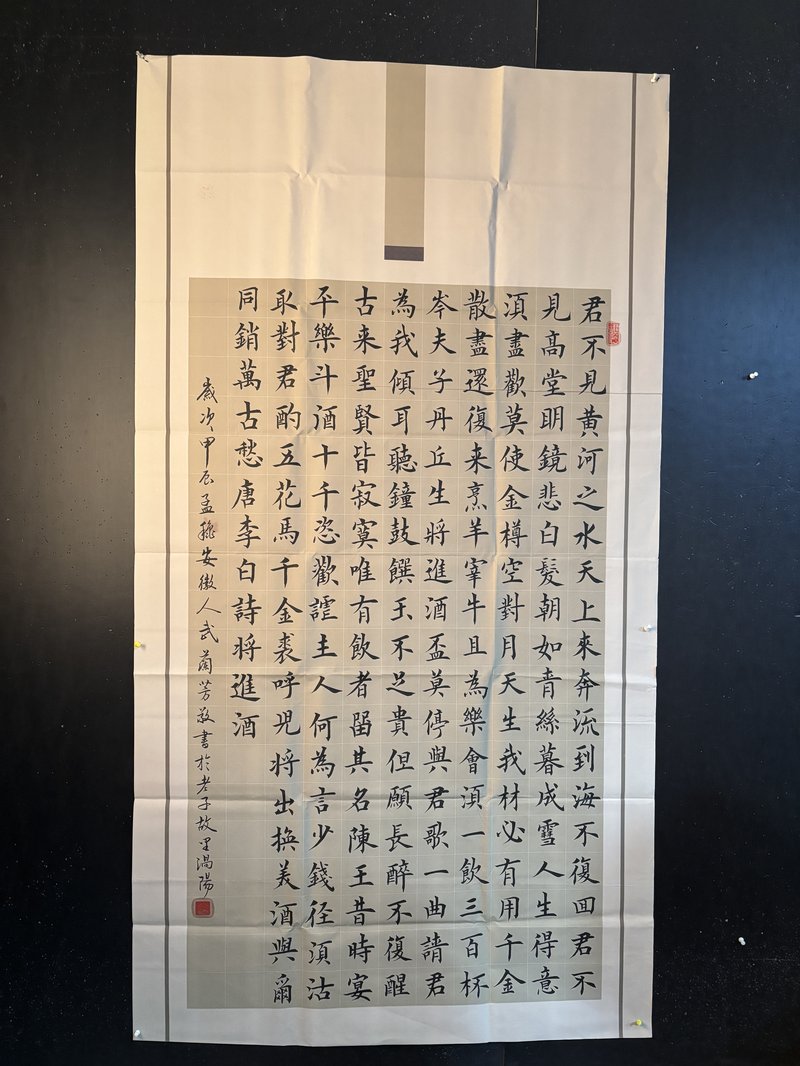 君不見黄河之水天上來奔流到海不復回君不
見髙堂明鏡悲白髮朝如青絲暮成雪人生得意
須盡歡莫使金樽空對月天生我材必有用千金
散盡還復来烹羊宰牛且為樂會須一飲三百杯
岑夫子丹丘生將進酒盃莫停與君歌一曲請君
為我傾耳聽鐘鼓饌玉不足貴但願長醉不復醒
古来聖賢皆寂寞唯有飲者留其名陳王昔時宴
平樂斗酒十千恣歡謔主人何為言少錢徑須沽
取對君酌五花馬千金裘呼児将出換美酒與爾
同銷萬古愁唐李白詩将進酒
歲次甲辰孟龝安徽人武蘭芳敬書於老子故里渦陽